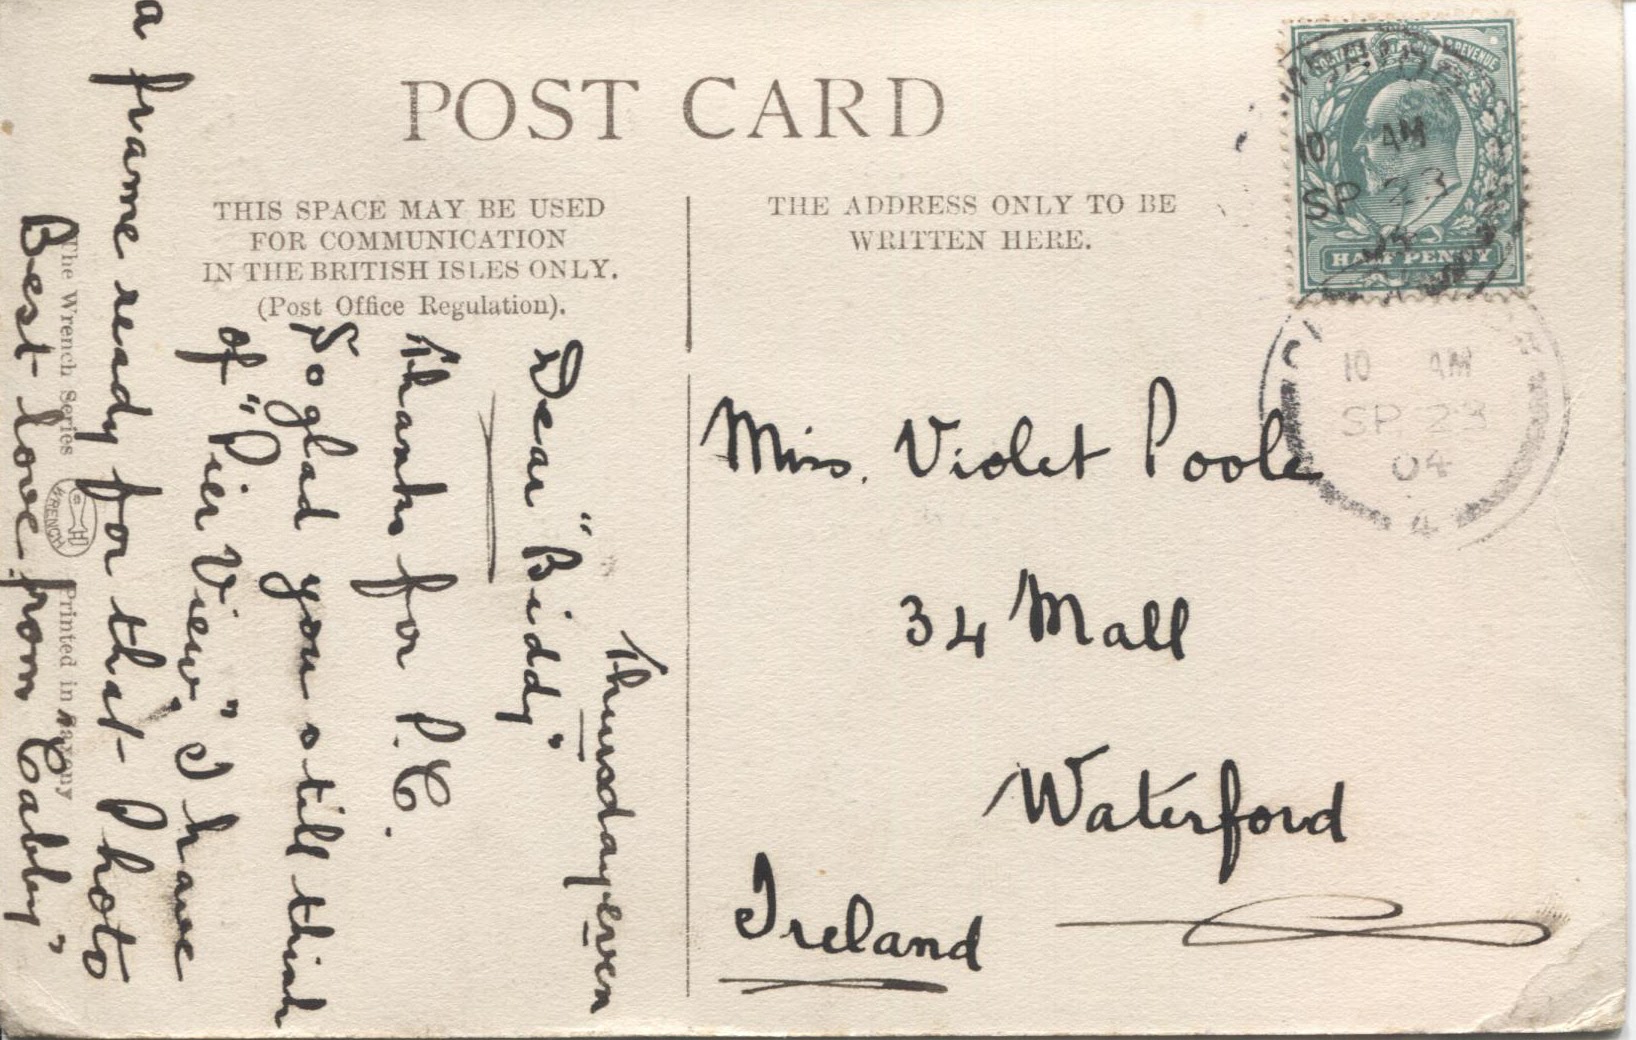 POST CARD
THIS SPACE MAY BE USED
FOR COMMUNICATION
IN THE BRITISH ISLES ONLY.
(Post Office Regulation).
THE ADDRESS ONLY TO BE
WRITTEN HERE.
POSTAGE REVENUE
HALFPENNY
10 AM
SP 23
04
10 AM
SP 23
04
4
Miss. Violet Poole
34 Mall
Waterford
Ireland
Thursday even
Dear "Biddy"
Thanks for P.C.
So glad you still think
of "Pier View" I have
a frame ready for that Photo
Best love from "Cabby"
The Wrench Series
WRENCH
Printed in Saxony